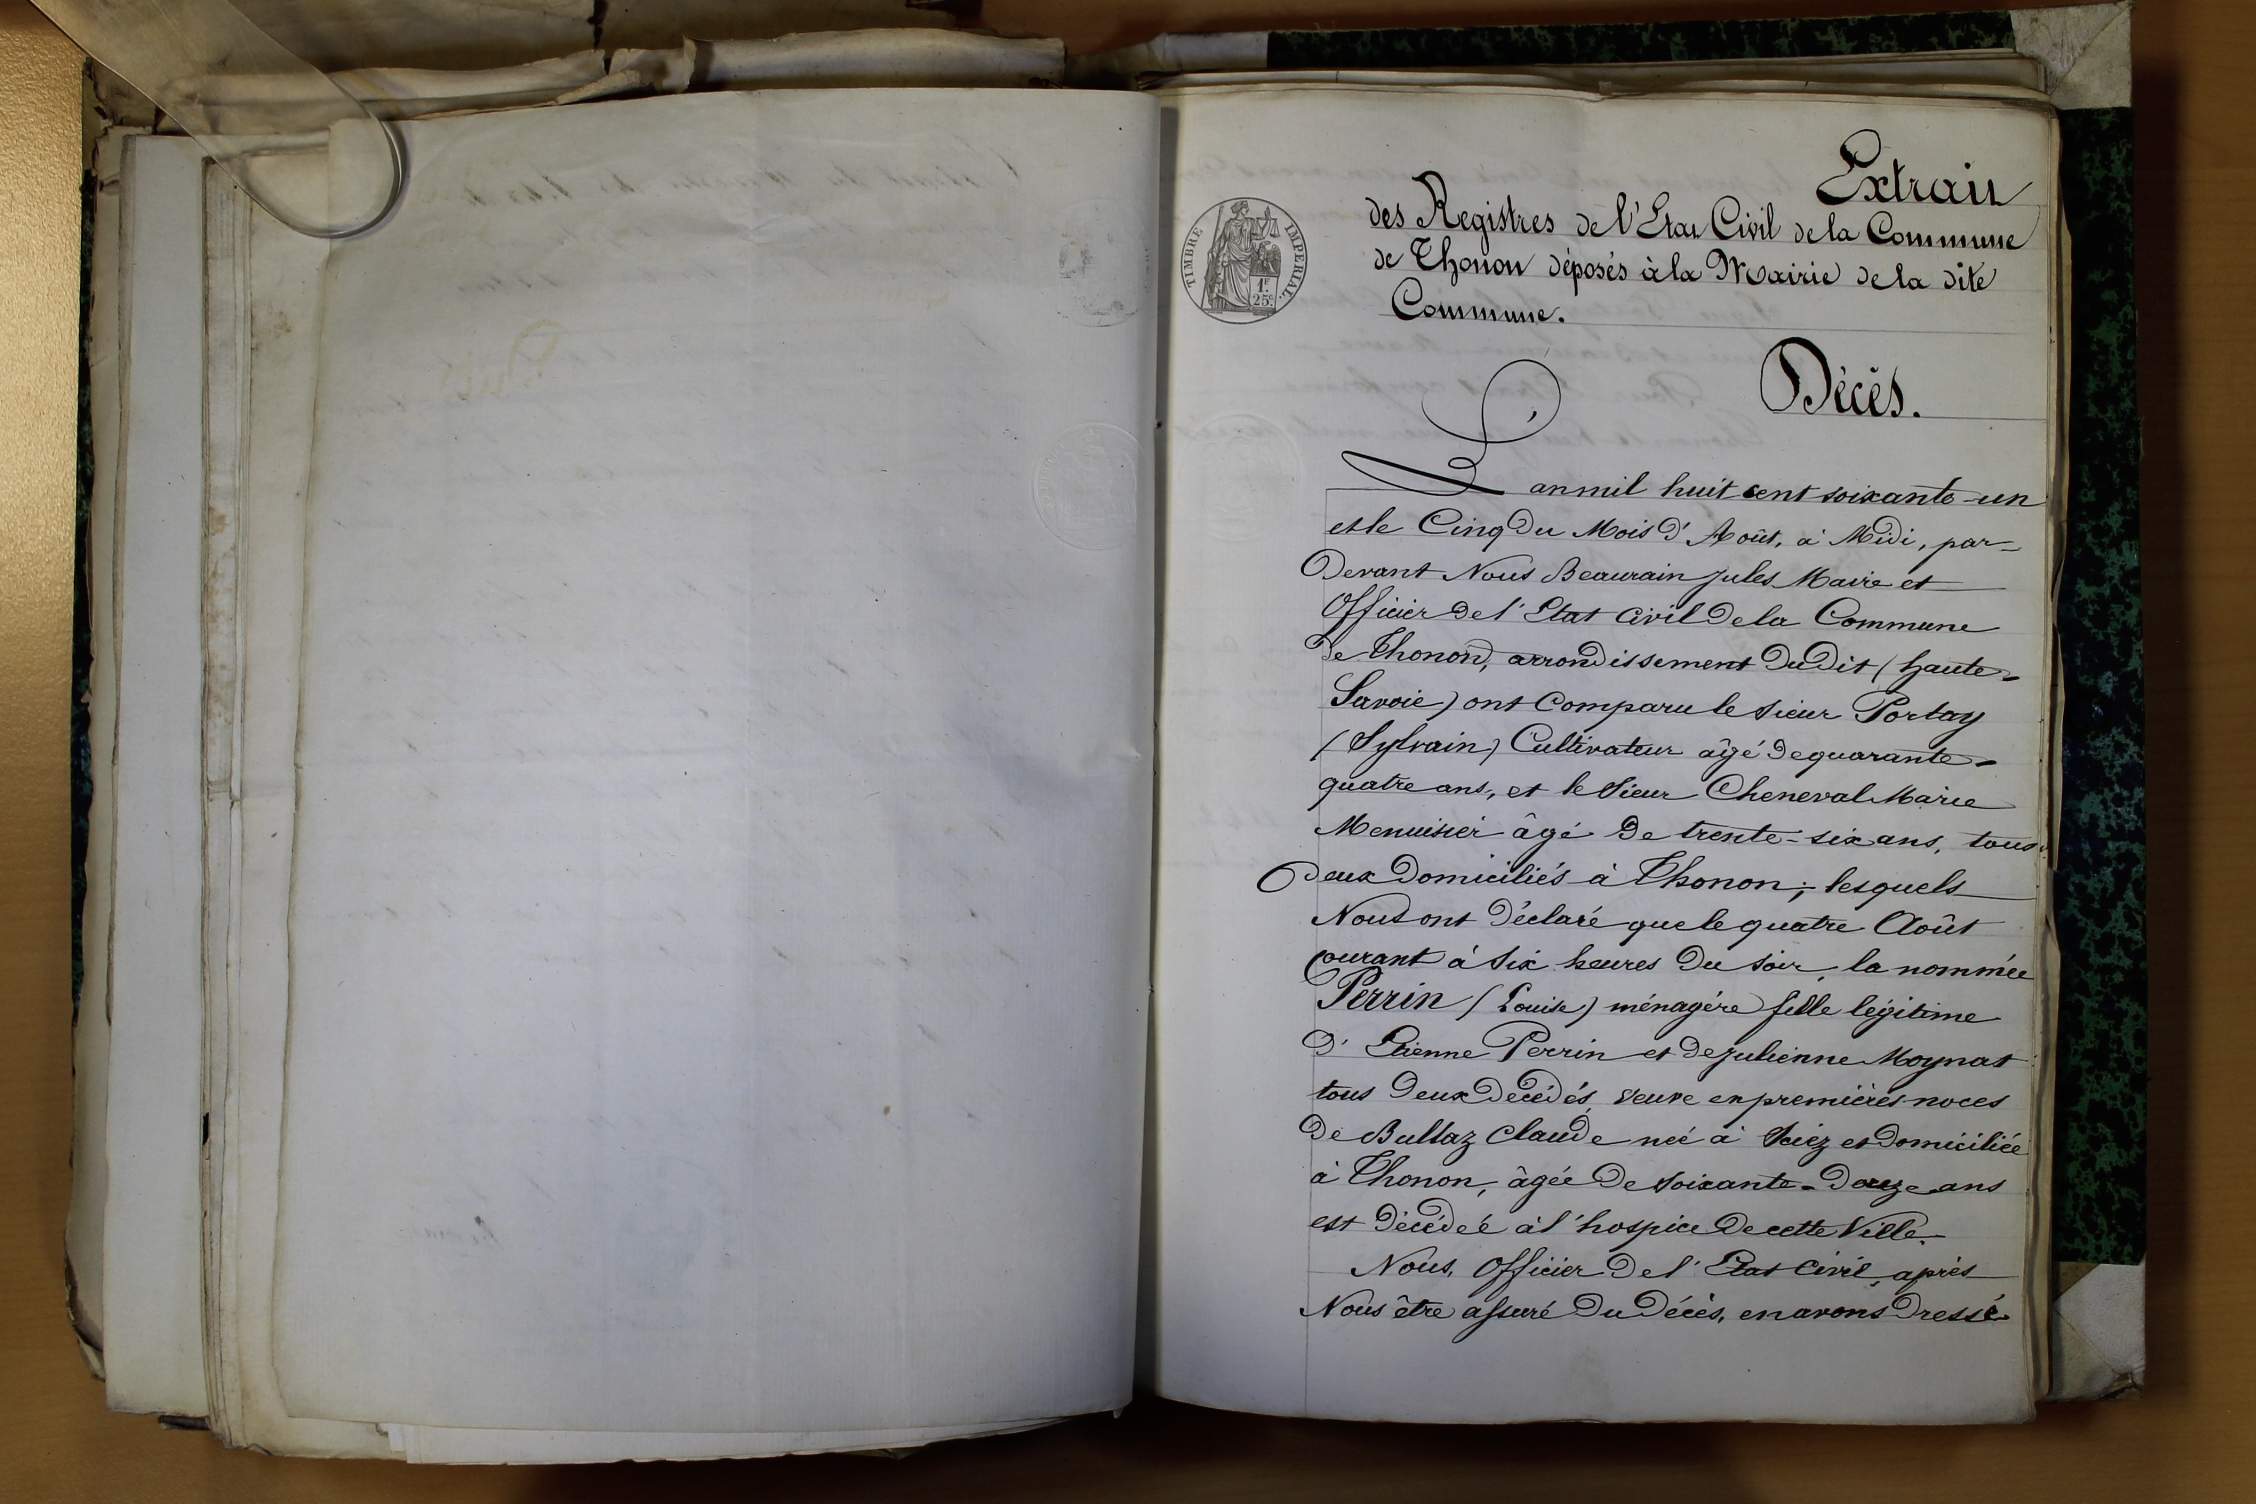 Extrait
des Registres de l'Etat Civil de la Commune
de Thonon déposés à la Mairie de la dite
Commune.
TIMBRE IMPERIAL.
1F.
25C.
Décès.
L'an mil huit cent soixante-un
et le Cinq du Mois d'Août, à Midi, par-
Devant Nous Beaurain Jules Maire et
Officier de l'Etat Civil de la Commune
de Thonon, arrondissement du dit (haute-
Savoie) ont Comparu le sieur Portay
(Sylvain) Cultivateur âgé de quarante-
quatre ans, et le Sieur Cheneval Marie
Menuisier âgé de trente-six ans, tous
deux domiciliés à Thonon; lesquels
Nous ont déclaré que le quatre Août
Courant à six heures du soir, la nommée
Perrin (Louise) ménagère fille légitime
d'Etienne Perrin et de Julienne Moynat
tous deux décédés, veuve en premières noces
de Bullaz Claude née à Sciez et domiciliée
à Thonon, âgée de soixante-douze ans
est décédée à l'hospice de cette Ville.
Nous, Officier de l'Etat Civil, après
Nous être assuré du décès, en avons dressé